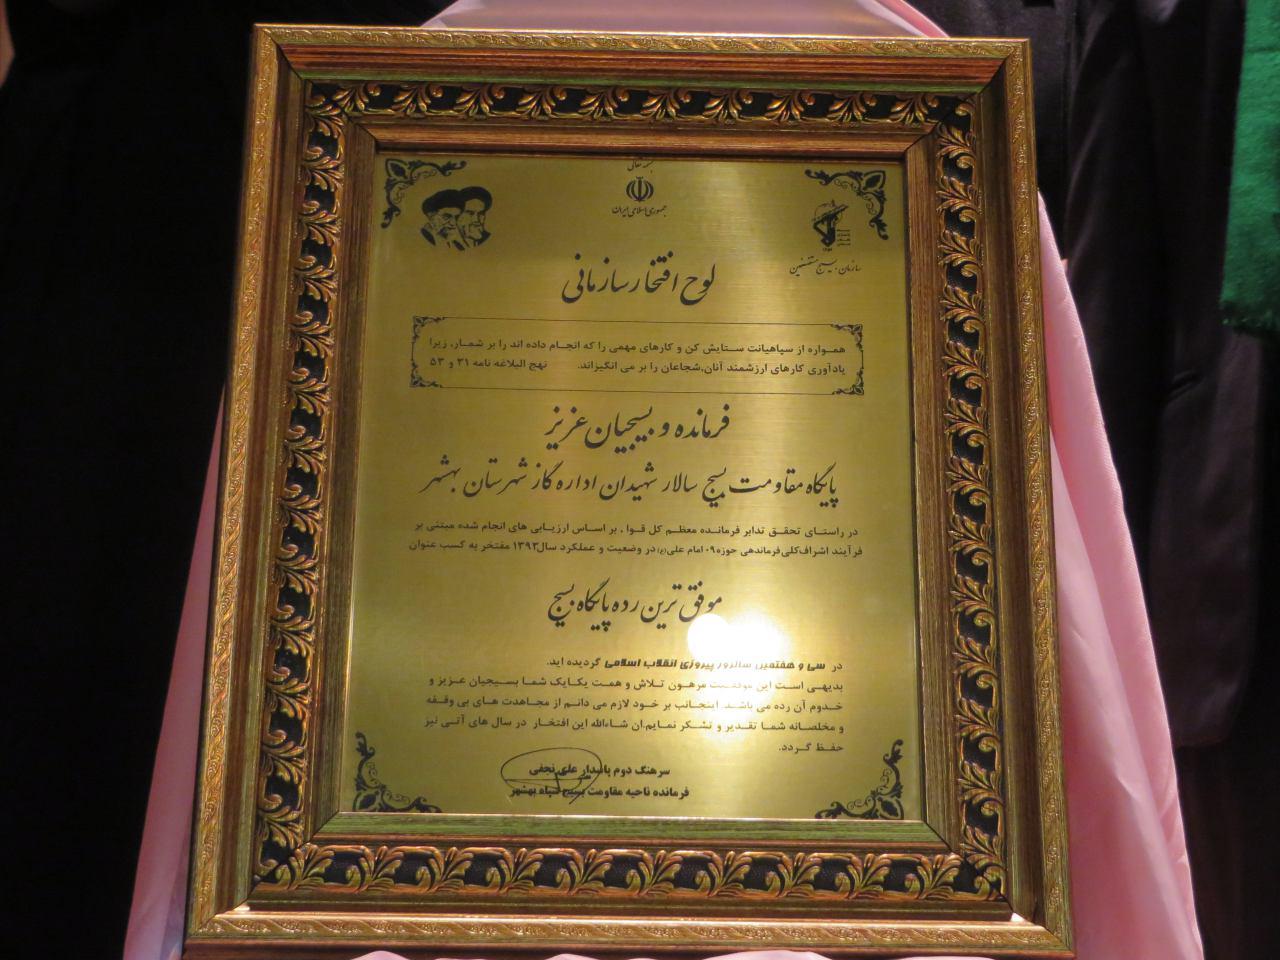 بسمه تعالی
جمهوری اسلامی ایران
سازمان بسیج مستضعفین
لوح افتخار سازمانی
همواره از سپاهیانت ستایش کن و کارهای مهمی را که انجام داده اند را بر شمار، زیرا
یادآوری کارهای ارزشمند آنان،شجاعان را بر می انگیزاند. نهج البلاغه نامه ۳۱ و ۵۳
فرمانده و بسیجیان عزیز
پایگاه مقاومت بسیج سالار شهیدان اداره گاز شهرستان بهشهر
در راستای تحقق تدابر فرمانده معظم کل قوا ، بر اساس ارزیابی های انجام شده مبتنی بر
فرآیند اشراف کلی فرماندهی حوزه ۰۹ امام علی(ع) در وضعیت و عملکرد سال ۱۳۹۳ مفتخر به کسب عنوان
موفق ترین رده پایگاه بسیج
در سی و هفتمین سالروز پیروزی انقلاب اسلامی گردیده اید.
بدیهی است این موفقیت مرهون تلاش و همت یکایک شما بسیجیان عزیز و
خدوم آن رده می باشد. اینجانب بر خود لازم می دانم از مجاهدت های بی وقفه
و مخلصانه شما تقدیر و تشکر نمایم.ان شاءالله این افتخار در سال های آتی نیز
حفظ گردد.
سرهنگ دوم پاسدار علی نجفی
فرمانده ناحیه مقاومت بسیج سپاه بهشهر